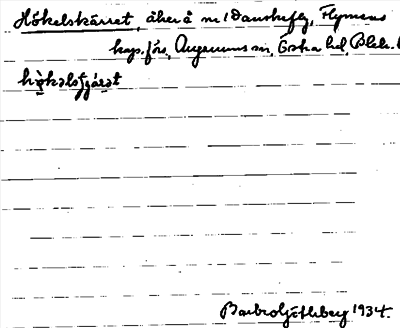 Hökelskärret, åker å nr 1 Danskefly, Flymens
kap. förs, Augerums sn, Östra hd, Blek. l
hökəlstjärət
Barbro Götheberg 1934.